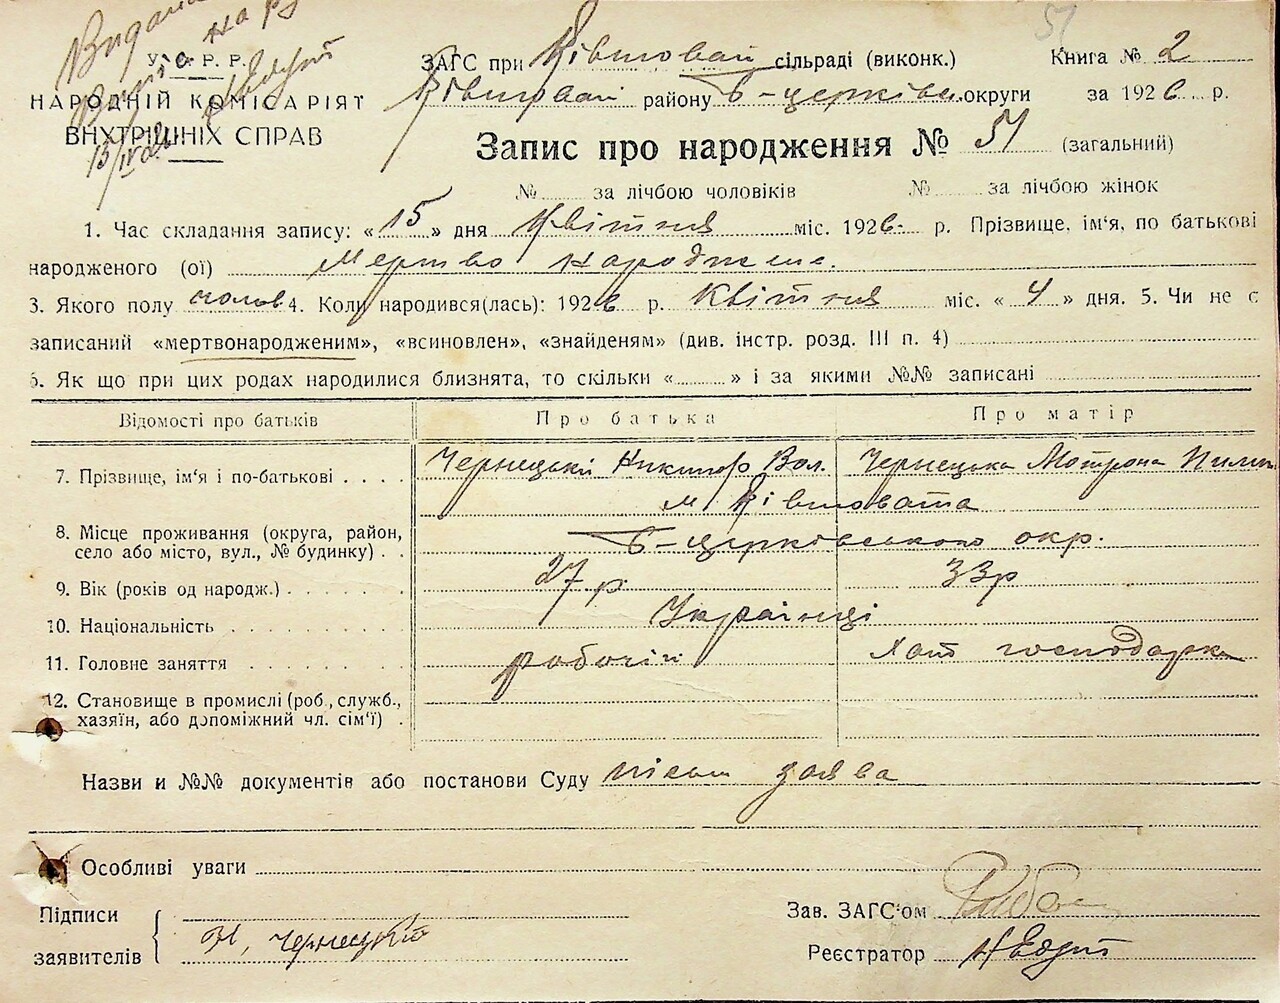 51
Видана
на р
У. С. Р. Р.
НАРОДНІЙ КОМІСАРІЯТ
ВНУТРІШНІХ СПРАВ
13/IV
ЗАГС при Ківшоват сільраді (виконк.) Книга № 2
Ківшоват району Б-церківс. округи за 1926 р.
Запис про народження № 51 (загальний)
№ за лічбою чоловіків № за лічбою жінок
1. Час складання запису: «15» дня Квітня міс. 1926 р. Прізвище, ім'я, по батькові
народженого (ої) Мертво народжене.
3. Якого полу чолов. 4. Коли народився(лась): 1926 р. Квітня міс. «4» дня. 5. Чи не є
записаний «мертвонародженим», «всиновлен», «знайденям» (див. інстр. розд. III п. 4)
6. Як що при цих родах народилися близнята, то скільки « » і за якими №№ записані
Відомості про батьків Про батька Про матір
7. Прізвище, ім'я і по-батькові Чернецькій Никифор Вол. Чернецька Мотрона Пилип
м Ківшовата
8. Місце проживання (округа, район,
село або місто, вул., № будинку) Б-церківського окр.
9. Вік (років од народж.) 27 р. 33 р
10. Національність Українці
11. Головне заняття робочій Хат господарка
12. Становище в промислі (роб., служб.,
хазяїн, або допоміжний чл. сім'ї)
Назви и №№ документів або постанови Суду письм заява
Особливі уваги
Підписи
заявителів Н, Чернецкій
Зав. ЗАГС'ом
Реєстратор